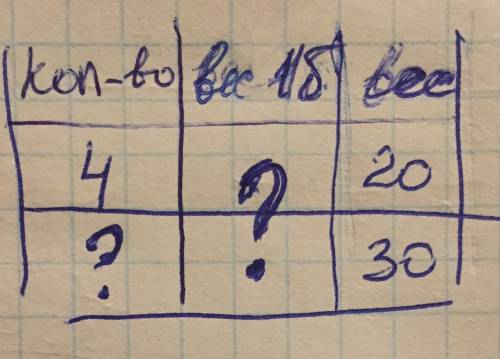 кол-во вес 1б вес
4 ? 20
? 30